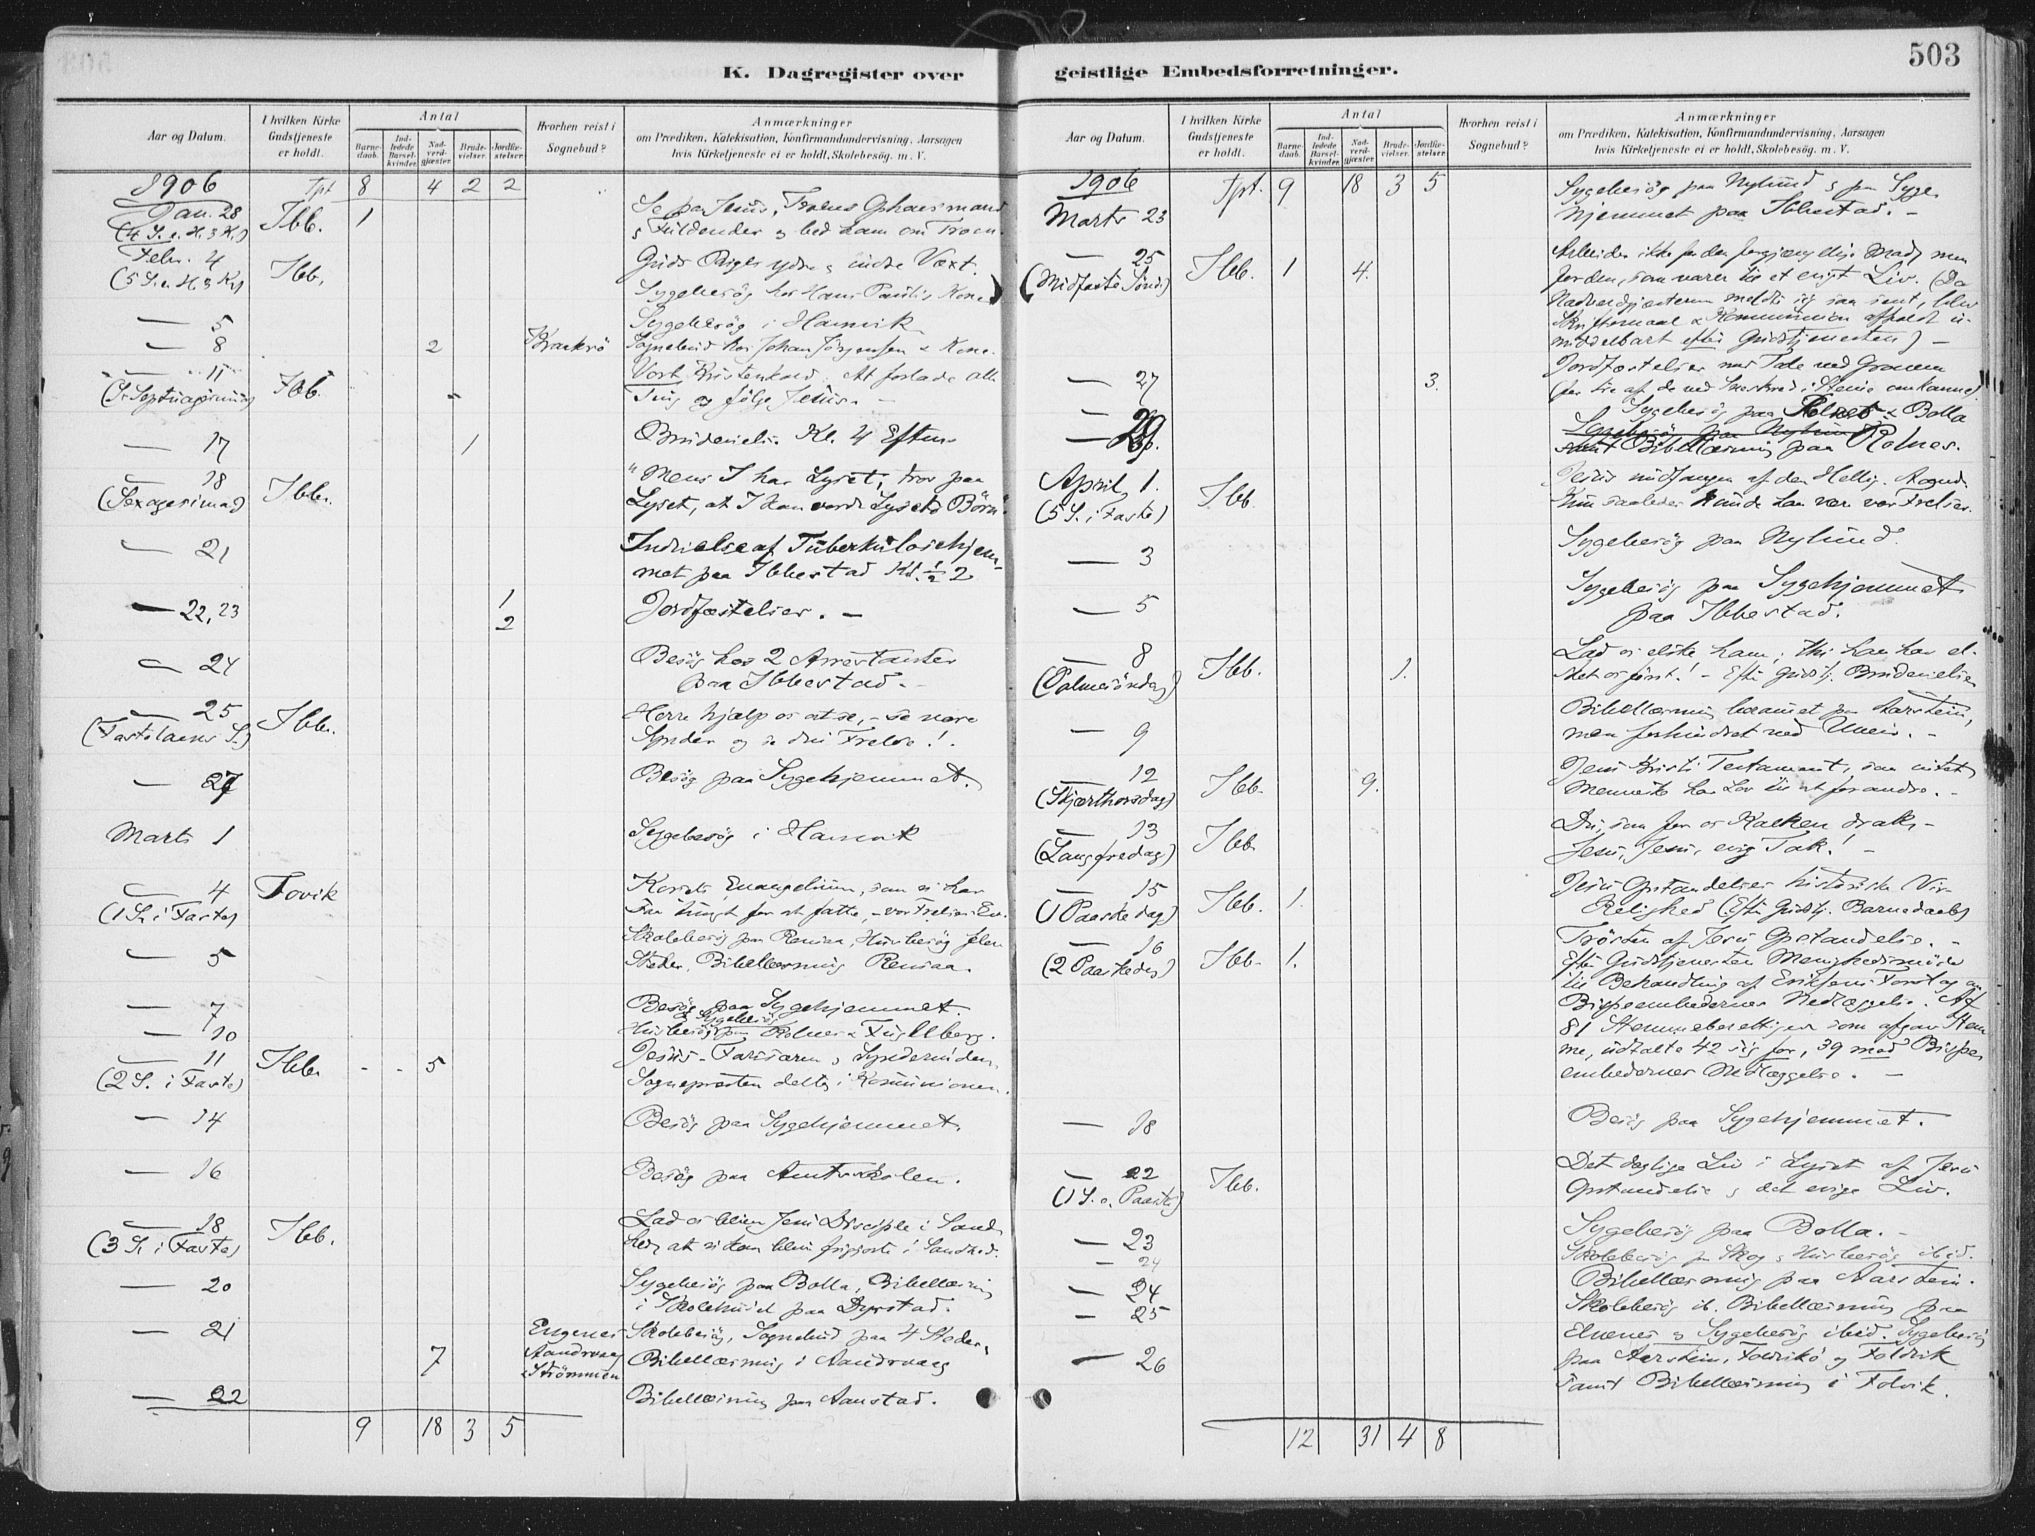 503
K. Dagregister over geistlige Embedsforretninger.
Aar og Datum.
I hvilken Kirke Gudstjeneste er holdt.
Antal
Barne-daab.
Ind-ledede Barsel-kvinder.
Nad-verd-gjæster.
Brude-vielser.
Jordfæ-stelser.
Hvorhen reist i Sognebud?
Anmærkninger
om Prædiken, Katekisation, Konfirmandundervisning, Aarsagen
hvis Kirketjeneste ei er holdt, Skolebesøg. m. V.
1906 Tpt 8 4 2 2
Jan. 28 Ibb. 1 Se paa Jesus, Troens Ophavsmand
(4 S. e. H. 3 K.) & Fuldender og bed ham om Troen.
Febr. 4 Ibb. Guds Riges ydre & indre Vext.
(5 S. e. H. 3 K.) Sygebesøg hos Hans Paulis Kone
— 5 Sygebesøg i Hamvik
— 8 2 Kraakrø Sognebud hos Johan Jörgensen & Kone.
— 11 Ibb. Vort Kristenkald. At forlade alle
(S. Septuagesima) Ting og følge Jesus. —
— 17 1 Brudevielse Kl. 4 Efterm.
— 18 Ibb. "Mens I har Lyset, tror paa
(Sexagesima) Lyset, at I kan vorde Lysets Börn"
— 21 Indvielse af Tuberkulosehjem-
met paa Ibbestad Kl. ½ 2
— 22, 23 1 Jordfæstelser. —
2
— 24 Besøg hos 2 Arrestanter
paa Ibbestad. —
— 25 Ibb. Herre hjælp os at se, - se vore
(Fastelavns S.) Synder og se din Frelse!.
— 27 Besøg paa Sygehjemmet.
Marts 1 Sygebesøg i Hamvik
— 4 Fovik Korsets Evangelium, som vi har
(1 S. i Faste) saa tungt for at fatte, - vor Frelses Ev.
Skolebesøg paa Rensaa, Husbesøg flere
— 5 Steder, Bibellæsning Rensaa.
— 7 Besøg paa Sygehjemmet.
& Sygebesøg
— 10 Husbesøg paa Rolnes & Fuglberg.
— 11 Ibb. - - 5 Jesus - Farisæren & Synderinden
(2 S. i Faste) Sognepresten deltog i Kommunionen.
— 14 Besøg paa Sygehjemmet.
— 16 Besøg paa Amtsskolen.
— 18 Ibb. Lad os blive Jesu Disciple i Sand-
(3 S. i Faste) hed, at vi kan blive frigjorte i Sandhed.
— 20 Sygebesøg paa Bolla, Bibellæsning
i Skolehuset paa Dyrstad.
— 21 Engenes Skolebesøg, Sognebud paa 4 Steder,
7 Aandrvaag Bibellæsning i Aandrvaag
& Strömmen
— 22 Bibellæsning paa Aanstad.
9 18 3 5
Aar og Datum.
I hvilken Kirke Gudstjeneste er holdt.
Antal
Barne-daab.
Ind-ledede Barsel-kvinder.
Nad-verd-gjæster.
Brude-vielser.
Jordfæ-stelser.
Hvorhen reist i Sognebud?
Anmærkninger
om Prædiken, Katekisation, Konfirmandundervisning, Aarsagen
hvis Kirketjeneste ei er holdt, Skolebesøg. m. V.
1906 Tpt. 9 18 3 5 Sygebesøg paa Nylund & paa Syge-
Marts 23 hjemmet paa Ibbestad. —
— 25 Ibb. 1 4. Arbeider ikke for den forgjængelige Mad, men
(Midfaste Sönd) for den, som varer til et evigt Liv. (Da
Nadverdgjæsterne meldte sig saa sent, blev
Skriftemaal & Kommunion afholdt u-
middelbart efter Gudstjenesten) —
— 27 3. Jordfæstelser med Tale ved Graven
Sygebesøg paa Rolnes & Bolla
— 29. Sygebesøg paa Nylund
samt Bibellæsning paa Rolnes.
April, 1. Ibb Jesus undfangen af den Hellig-Aand.
(5 S. i Faste) Kun saaledes kunde han være vor Frelser.
— 3 Sygebesøg paa Nylund.
— 5 Sygebesøg paa Sygehjemmet
paa Ibbestad.
— 8 Ibb. 1. Lad os elske ham; thi han har el-
(Palmesöndag) sket os först! - Efter Gudstj. Brudevielse
— 9 Bibellæsning berammet paa Aarstein,
men forhindret ved Uveir. —
— 12 Ibb. 9. Jesu Kristi Testament, som intet
(Skjærthorsdag) Menneske har Lov til at forandre. -
— 13 Ibb Du, som for os Kalken drak, -
(Langfredag) Jesus, Jesus, evig Tak! —
— 15 Ibb. 1. Jesu Opstandelses historiske Vir-
(1 Paaskedag) kelighed (Efter Gudstj. Barnedaab)
— 16 Ibb. 1. Trösten af Jesu Opstandelse. -
(2 Paaskedag) Efter Gudstjenesten Menighedsmöde
til Behandling af Eriksens Forslag om
Bispeembedernes Nedlæggelse. Af
81 Stemmeberettigede som afgav Stem
me, udtalte 42 sig for, 39 mod Bispe-
embedernes Nedlæggelse. —
— 18 Besøg paa Sygehjemmet.
— 22 Ibb. Det daglige Liv i Lyset af Jesu
(1 S. e. Paaske) Opstandelse & det evige Liv.
— 23 Sygebesøg paa Bolla. -
— 24 Skolebesøg paa Skog & Husbesøg ibid.
— 24 Bibellæsning paa Aarstein.
— 25 Skolebesøg ib. Bibellæsning paa
Elvenes & Sygebesøg ibid. Sygebesøg
— 26 paa Aarstein, Foldvikö og Foldvik
samt Bibellæsning i Fovik.
12 31 4 8